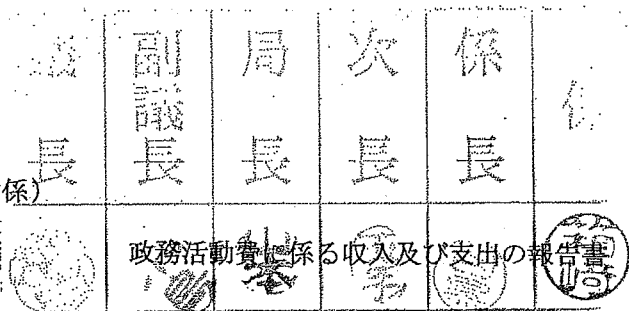 議長 副議長 局長 次長 係長 係
係)
政務活動費に係る収入及び支出の報告書